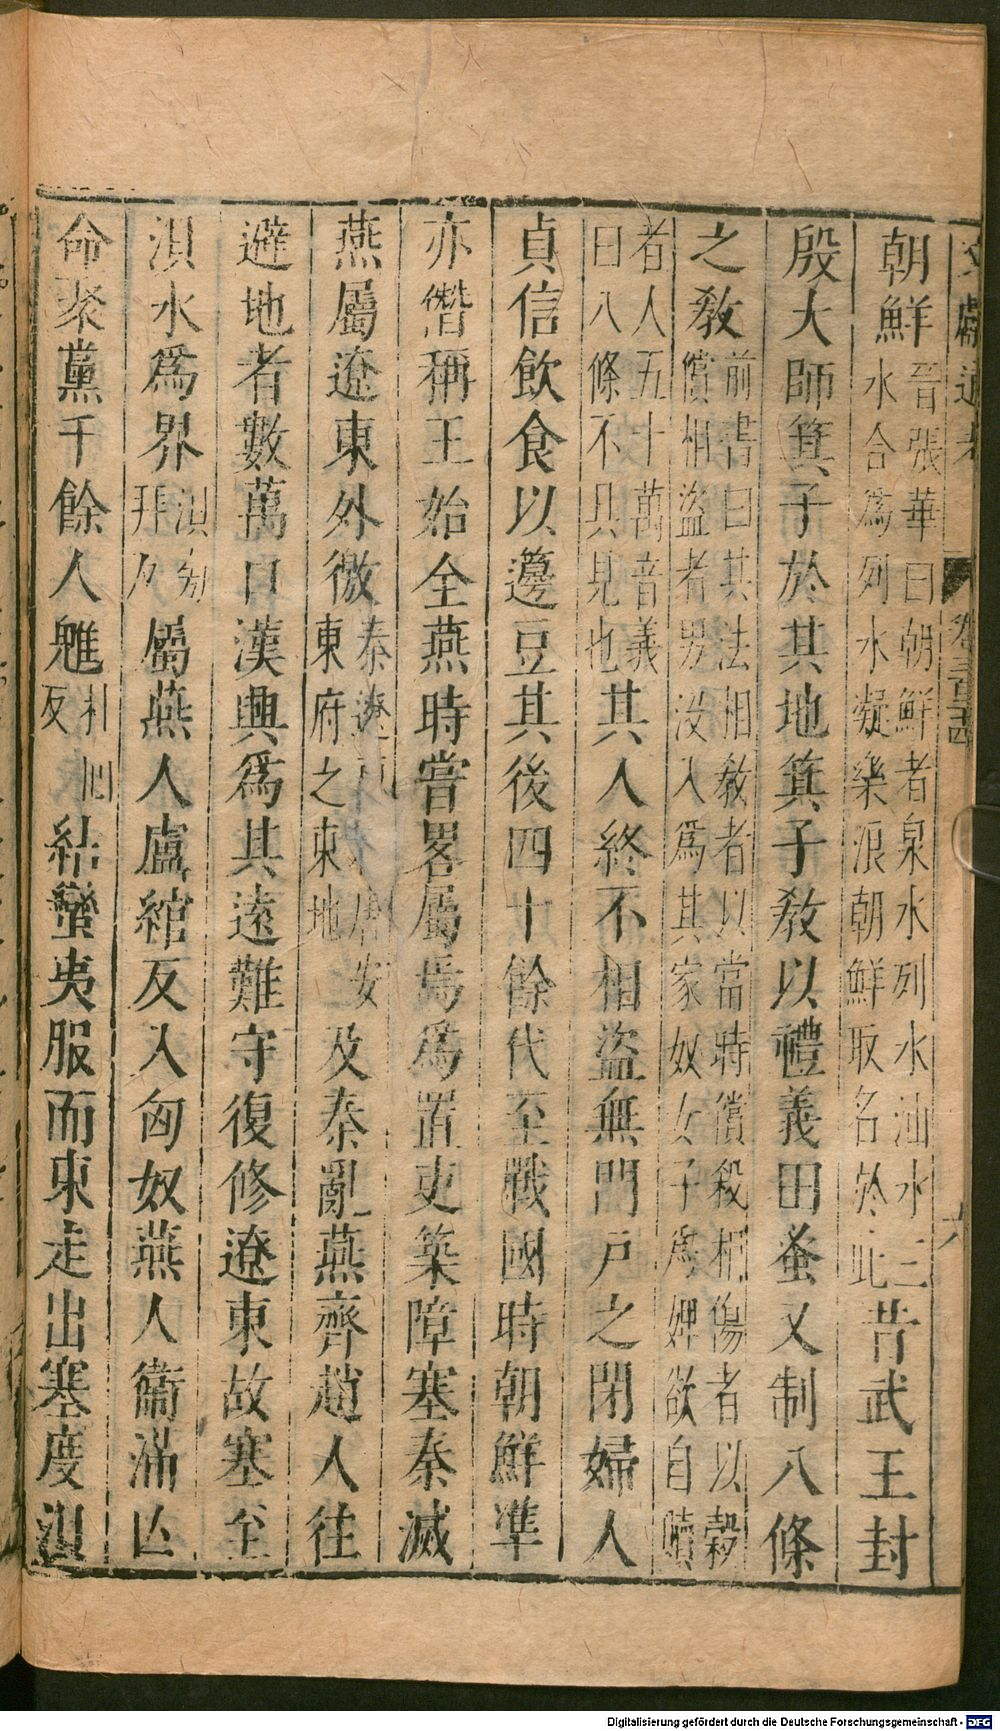 文獻通考 卷三百二十四 六
朝鮮晉張華曰朝鮮者泉水列水汕水三水合爲列水疑樂浪朝鮮取名於此昔武王封
殷大師箕子於其地箕子敎以禮義田蚕又制八條
之敎前書曰其法相敎者以當時償殺相傷者以穀償相盜者男沒入爲其家奴女子爲婢欲自贖
者人五十萬音義曰八條不具見也其人終不相盜無門戶之閉婦人
貞信飲食以籩豆其後四十餘代至戰國時朝鮮準
亦僭稱王始全燕時嘗畧屬焉爲置吏築障塞秦滅
燕屬遼東外徼秦遼東唐安東府之東地及秦亂燕齊趙人往
避地者數萬口漢興爲其遠難守復修遼東故塞至
浿水爲界浿匆拜反屬燕人盧綰反入匈奴燕人衞滿亾
命聚黨千餘人魋結蠻夷服而東走出塞度浿
Digitalisierung gefördert durch die Deutsche Forschungsgemeinschaft - DFG